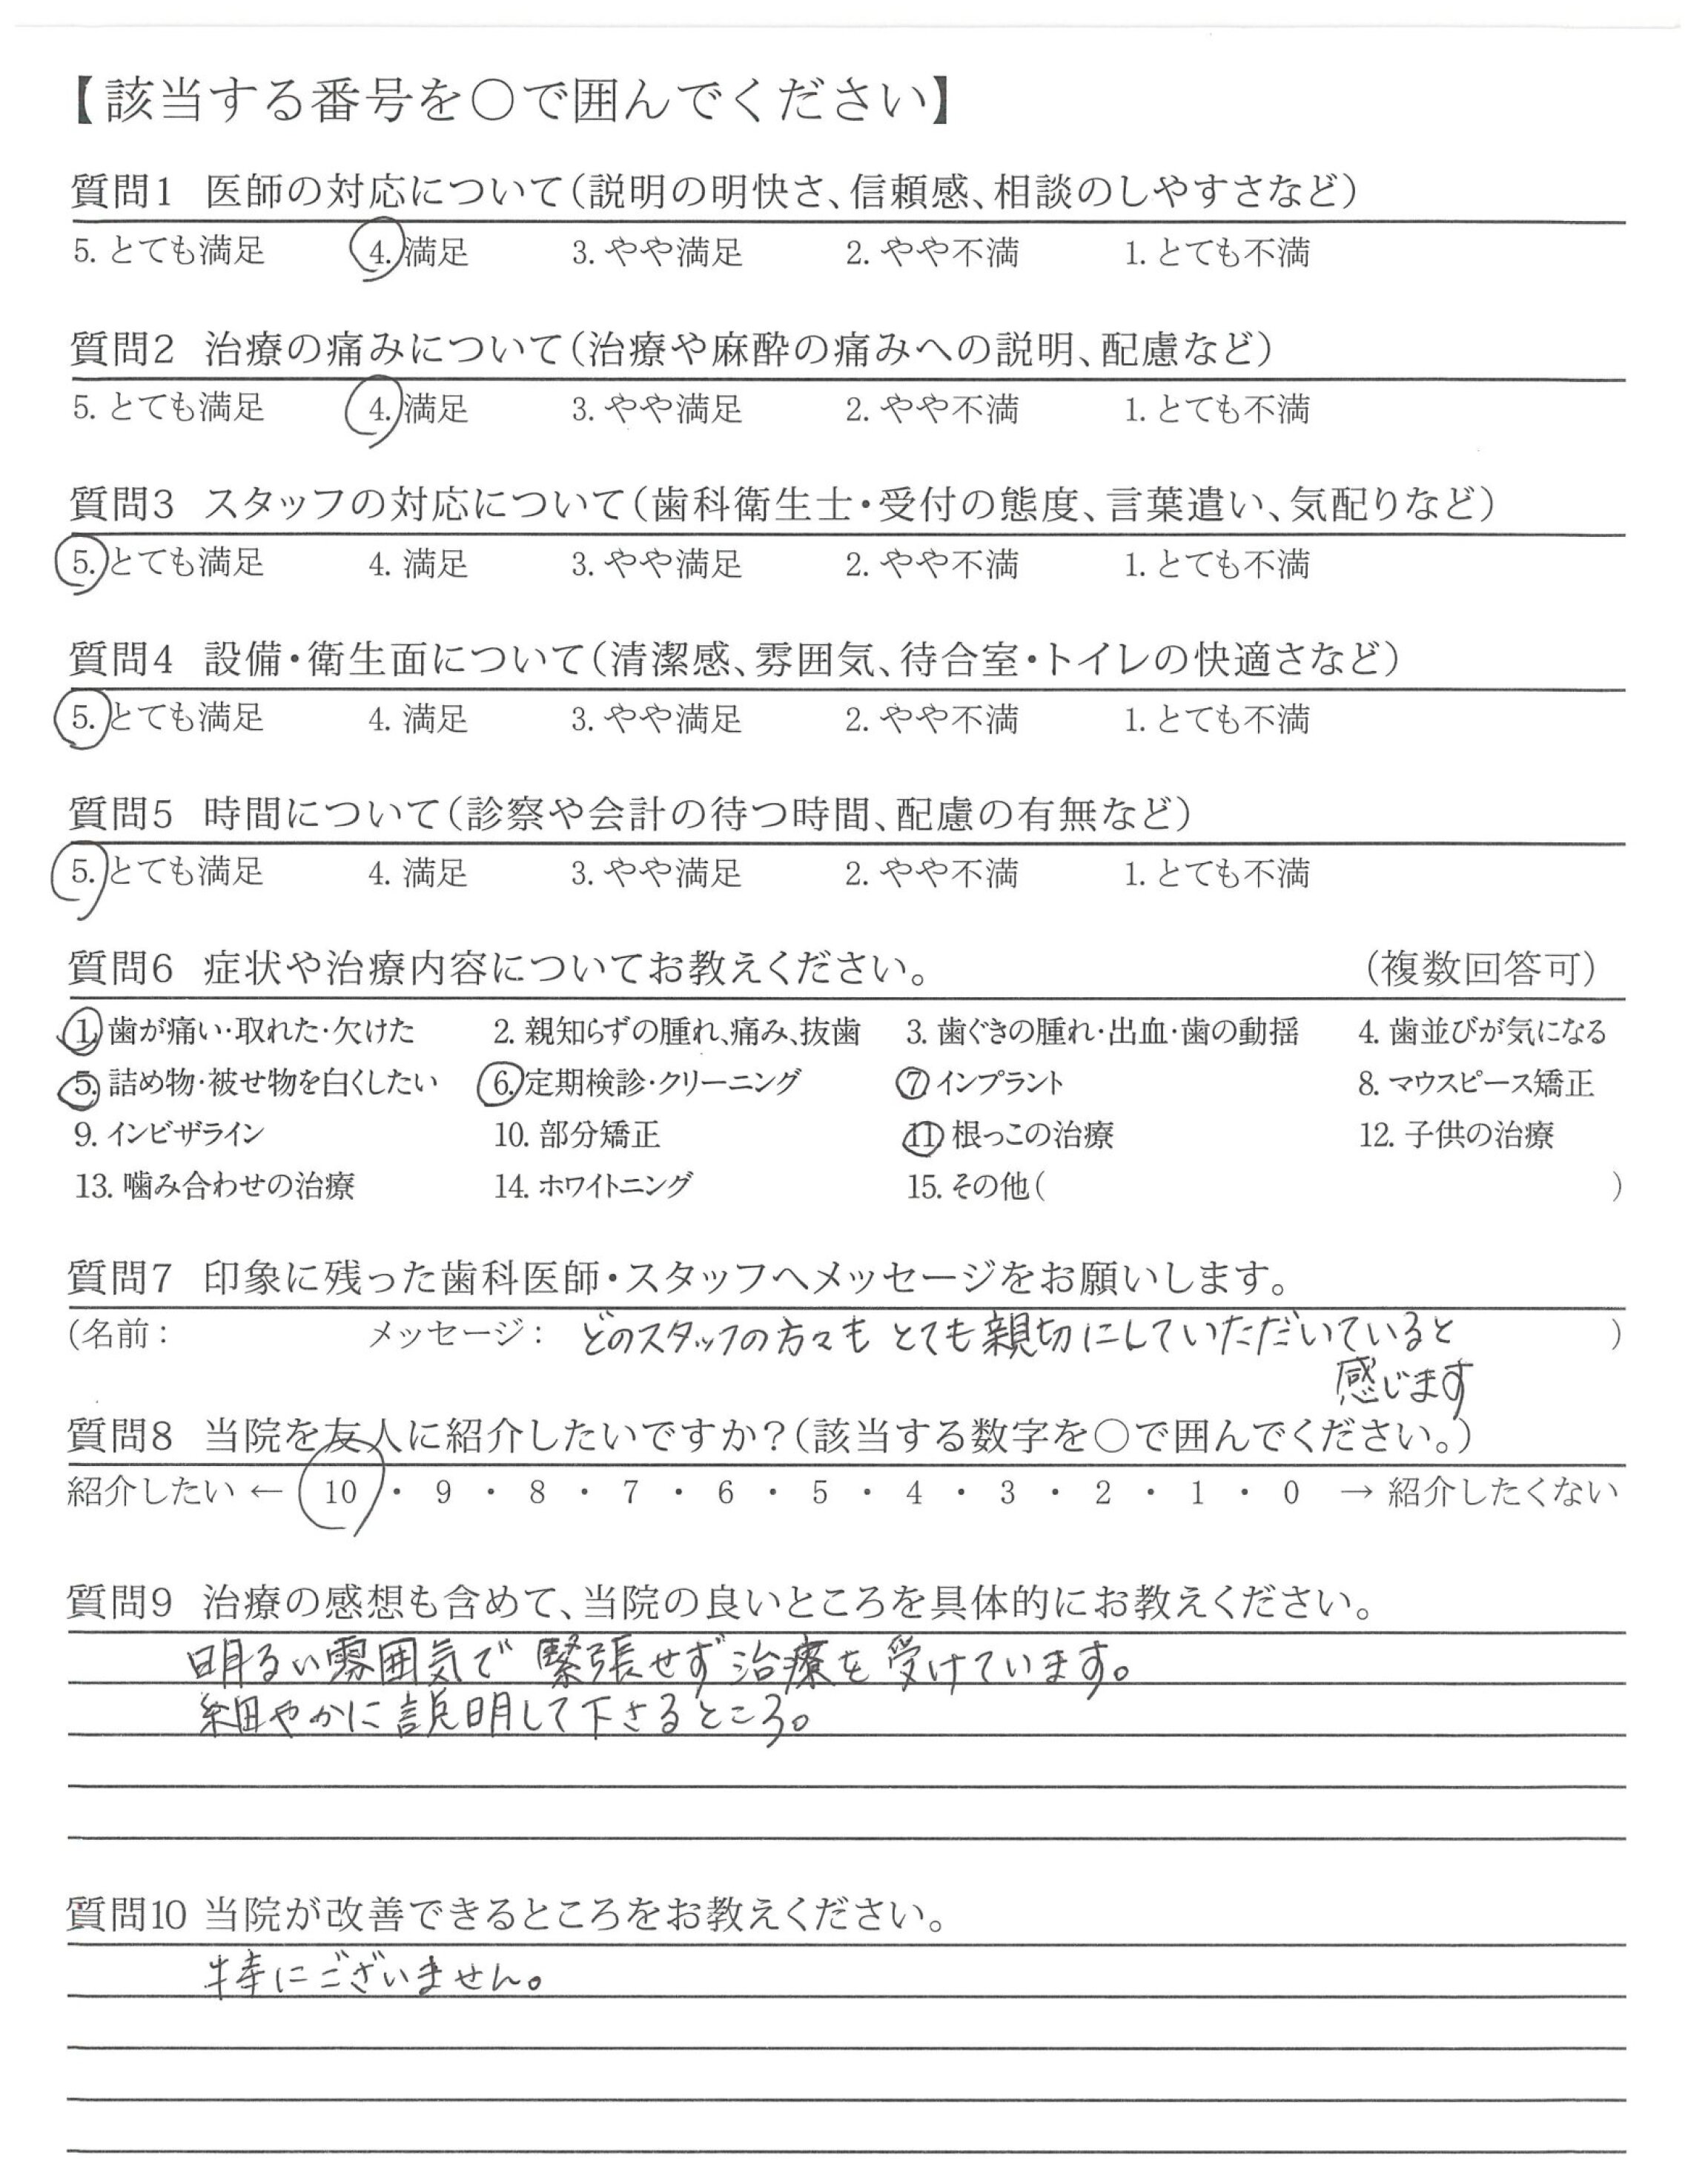 【該当する番号を○で囲んでください】
質問1 医師の対応について（説明の明快さ、信頼感、相談のしやすさなど）
5. とても満足 4. 満足 3. やや満足 2. やや不満 1. とても不満
質問2 治療の痛みについて（治療や麻酔の痛みへの説明、配慮など）
5. とても満足 4. 満足 3. やや満足 2. やや不満 1. とても不満
質問3 スタッフの対応について（歯科衛生士・受付の態度、言葉遣い、気配りなど）
5. とても満足 4. 満足 3. やや満足 2. やや不満 1. とても不満
質問4 設備・衛生面について（清潔感、雰囲気、待合室・トイレの快適さなど）
5. とても満足 4. 満足 3. やや満足 2. やや不満 1. とても不満
質問5 時間について（診察や会計の待つ時間、配慮の有無など）
5. とても満足 4. 満足 3. やや満足 2. やや不満 1. とても不満
質問6 症状や治療内容についてお教えください。 （複数回答可）
1. 歯が痛い・取れた・欠けた 2. 親知らずの腫れ、痛み、抜歯 3. 歯ぐきの腫れ・出血・歯の動揺 4. 歯並びが気になる
5. 詰め物・被せ物を白くしたい 6. 定期検診・クリーニング 7. インプラント 8. マウスピース矯正
9. インビザライン 10. 部分矯正 11. 根っこの治療 12. 子供の治療
13. 噛み合わせの治療 14. ホワイトニング 15. その他（ ）
質問7 印象に残った歯科医師・スタッフへメッセージをお願いします。
（名前： メッセージ： どのスタッフの方々も とても親切にしていただいていると ）
感じます
質問8 当院を友人に紹介したいですか？（該当する数字を○で囲んでください。）
紹介したい ← 10 ・ 9 ・ 8 ・ 7 ・ 6 ・ 5 ・ 4 ・ 3 ・ 2 ・ 1 ・ 0 → 紹介したくない
質問9 治療の感想も含めて、当院の良いところを具体的にお教えください。
明るい雰囲気で 緊張せず治療を受けています。
細やかに説明して下さるところ。
質問10 当院が改善できるところをお教えください。
特にございません。